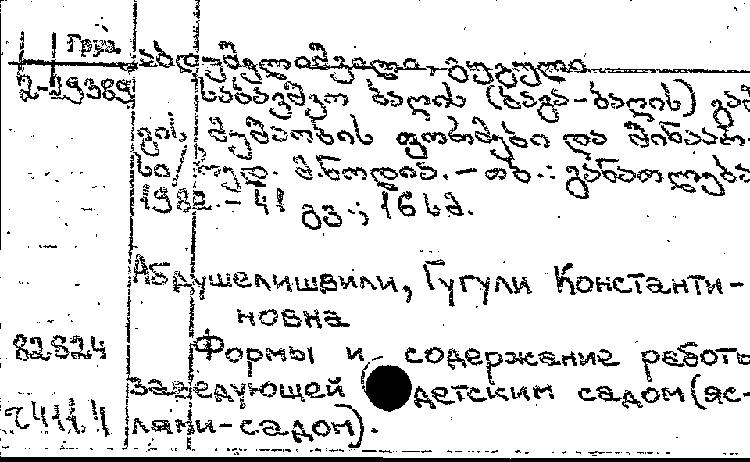 Груз.
აბდუშელიშვილი, გუგული
2-29389 საბავშვო ბაღის (ბაგა-ბაღის) გამ
გის მუშაობის ფორმები და შინაარ-
სი/რედ. მ.ნოდია. – თბ.: განათლება
1982. – 41 გვ.; 16 სმ.
Абдушелишвили, Гугули Константи-
новна
82824 Формы и содержание работы
заведующей детским садом (яс-
74111.4 лями-садом).